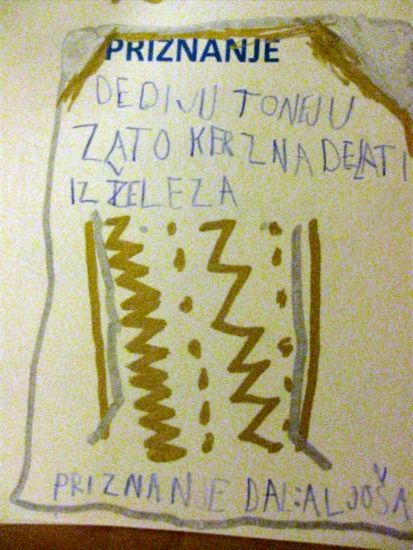 PRIZNANJE
DEDIJU TONEJU
ZATO KER ZNA DELATI
IZ ŽELEZA
PRIZNANJE DAL:ALJOŠA